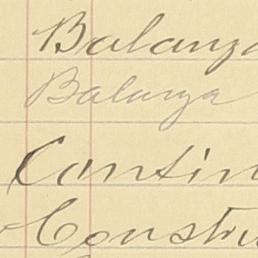 Balanza
Balanza
Contin
Constru